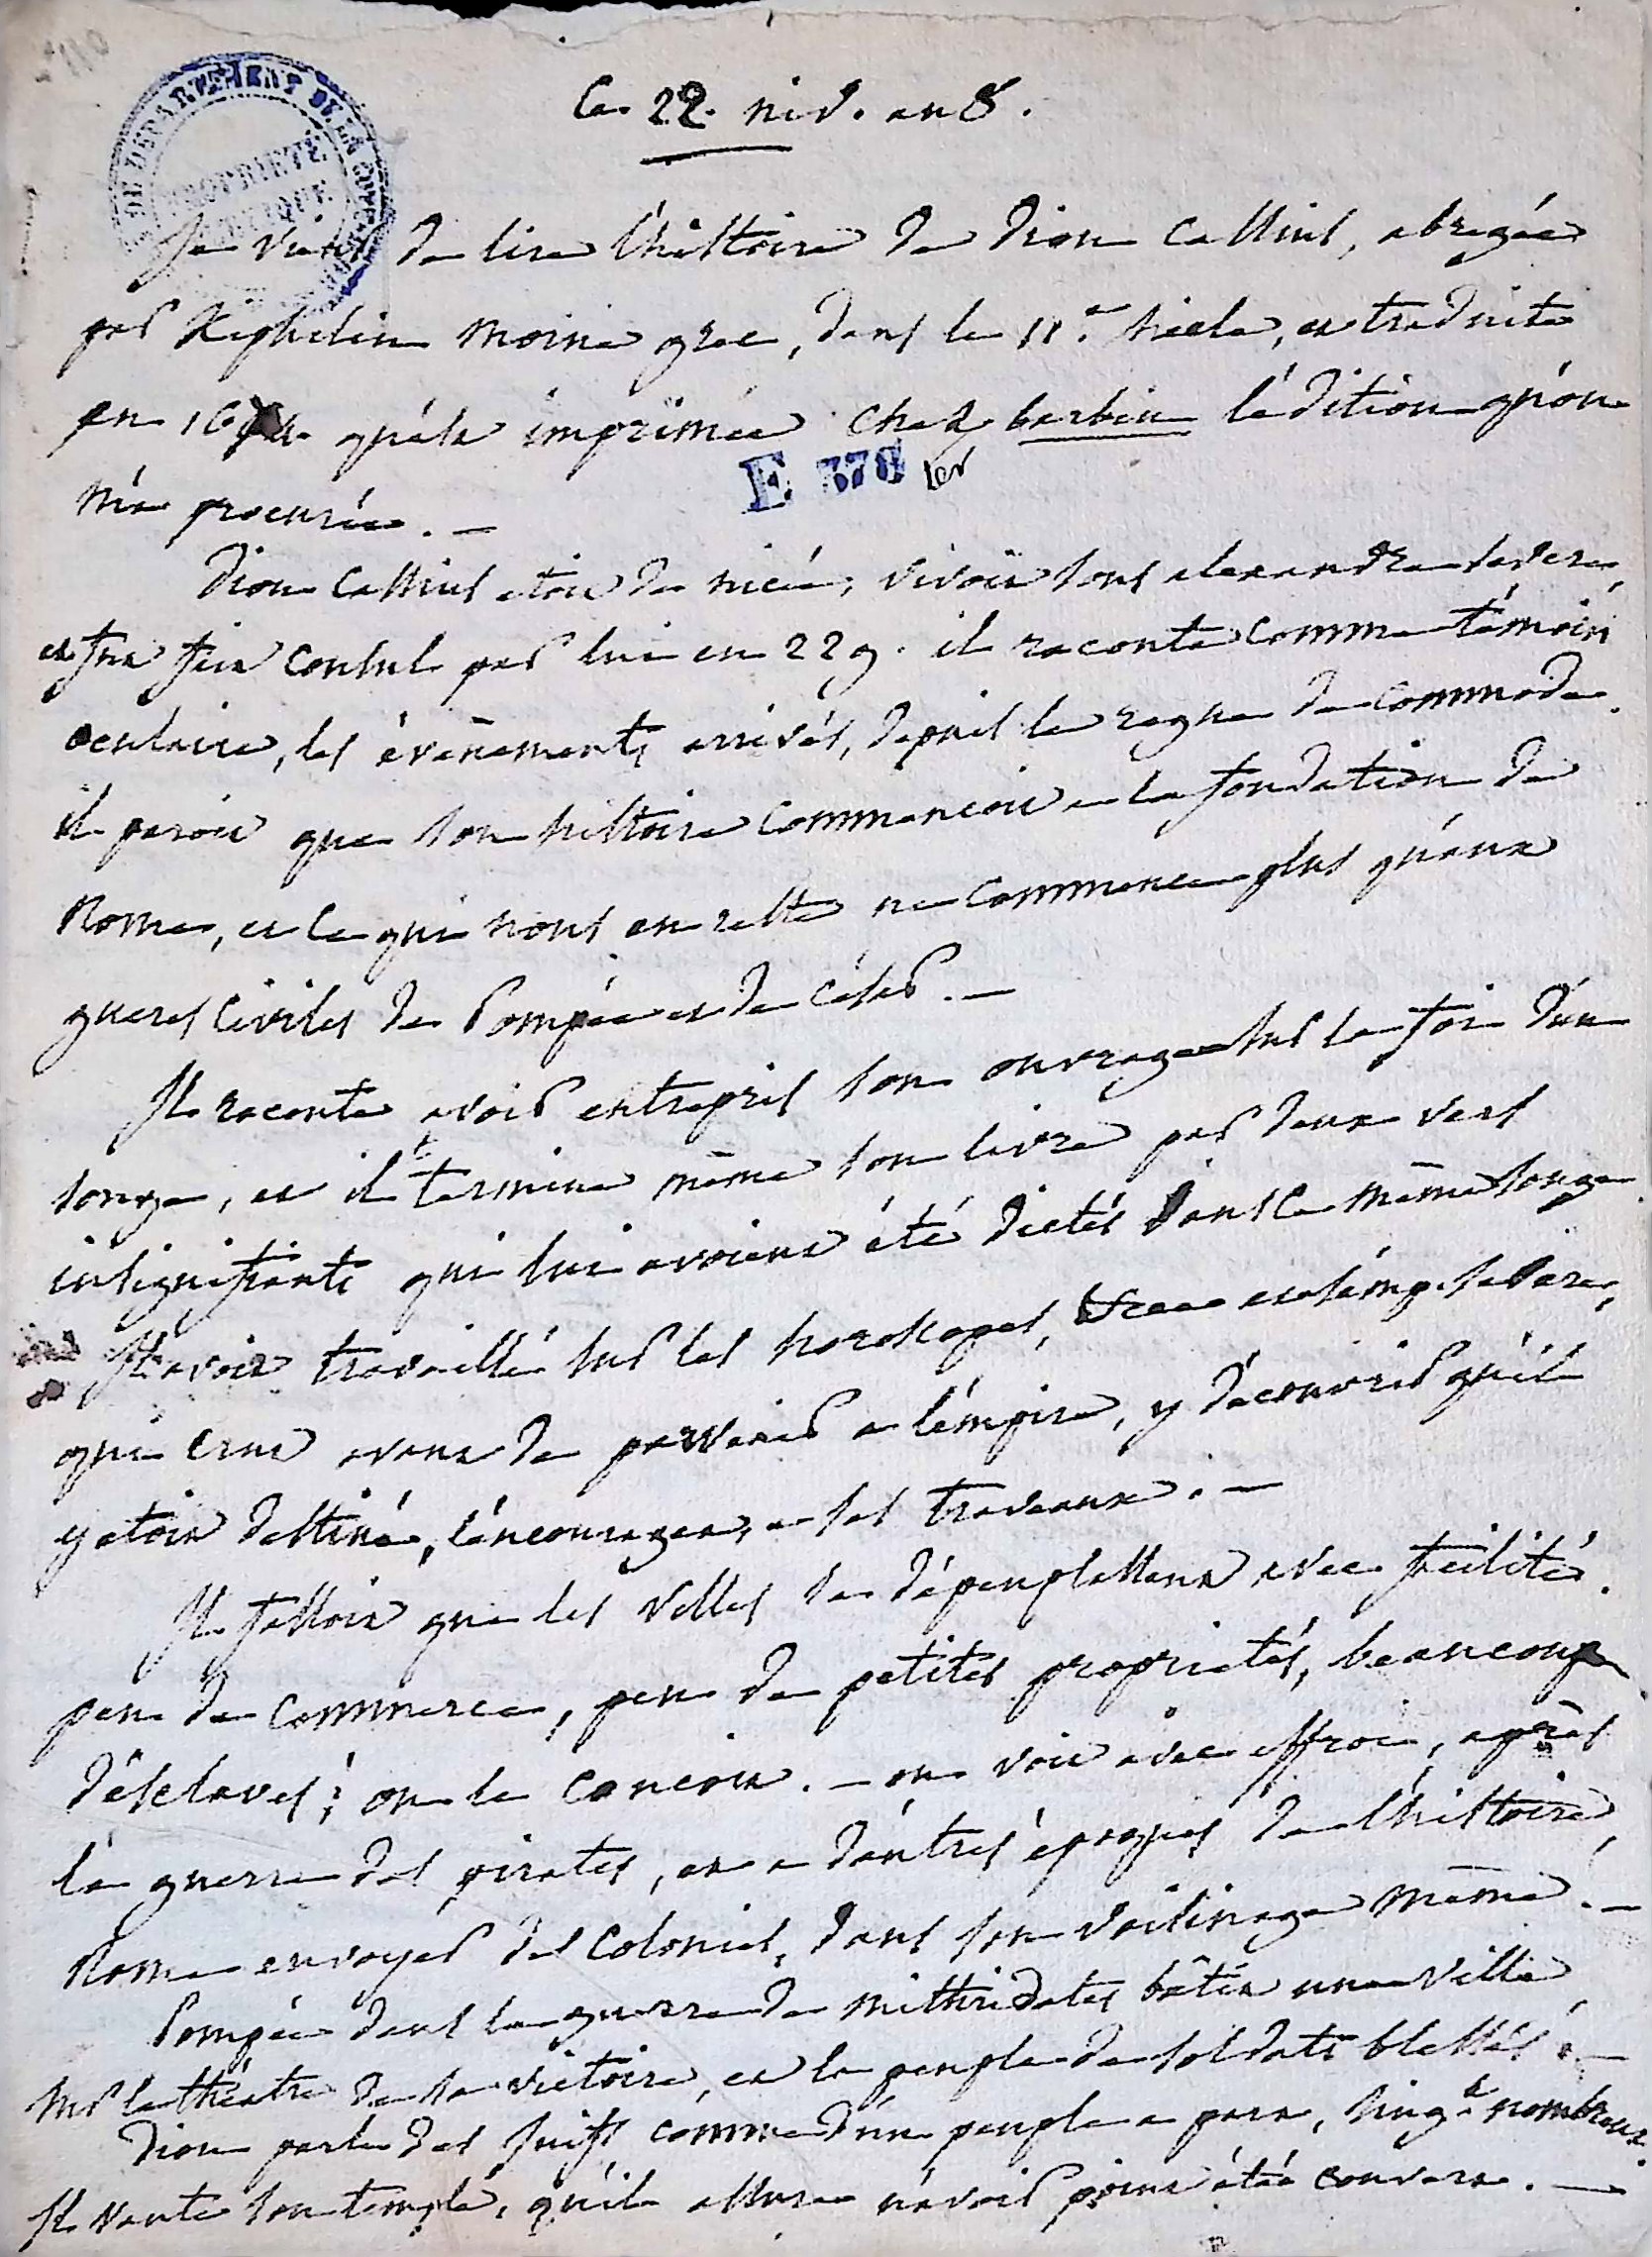 Ce 22. niv. an 8.
DU DÉPARTEMENT DE LA
PROPRIÉTÉ
PUBLIQUE
Je viens de lire l'histoire de Dion Cassius, abregée
par Xiphilin moine grec, dans le 11.e siecle, et traduite
en 16 qu'est imprimée chez barbin l'édition qu'on
m'a procurée. —
E 378 ter
Dion Cassius etoit de nicée, vivoit sous alexandre severe,
et fut fait consul par lui en 229. il raconte comme témoin
oculaire, les évènements arrivés, depuis le regne de commode.
il paroit que son histoire commencoit a la fondation de
Rome, et ce qui nous en reste ne commence plus qu'aux
gueres civiles de Pompée et de César. —
Il raconte avoir entrepris son ouvrage sur la foi d'un
songe, et il termine même son livre par deux vers
insignifiants qui lui avoient été dictés dans ce même songe
Il avoit travaillé sur les horoscopes, et severe,
qui crut avant de parvenir a l'empire, y découvrir qu'il
y etoit destiné, l'encouragea, a ses travaux. —
Il falloit que les villes se dépeuplassent avec facilité.
peu de commerce, peu de petites proprietés, beaucoup
d'esclaves; on le concoit. — on voit avec effroi, après
la guerre des pirates, et a d'autres époques de l'histoire
Rome envoyer des colonies, dans son voisinage même. —
Pompée dans la guerre de mithridates bâtit une ville
sur le théatre de sa victoire, et la peuple de soldats blessés. —
Dion parle des juifs comme d'un peuple a part, sing.t nombreux
Il vante son temple, qu'il assure n'avoir point été couvert. —